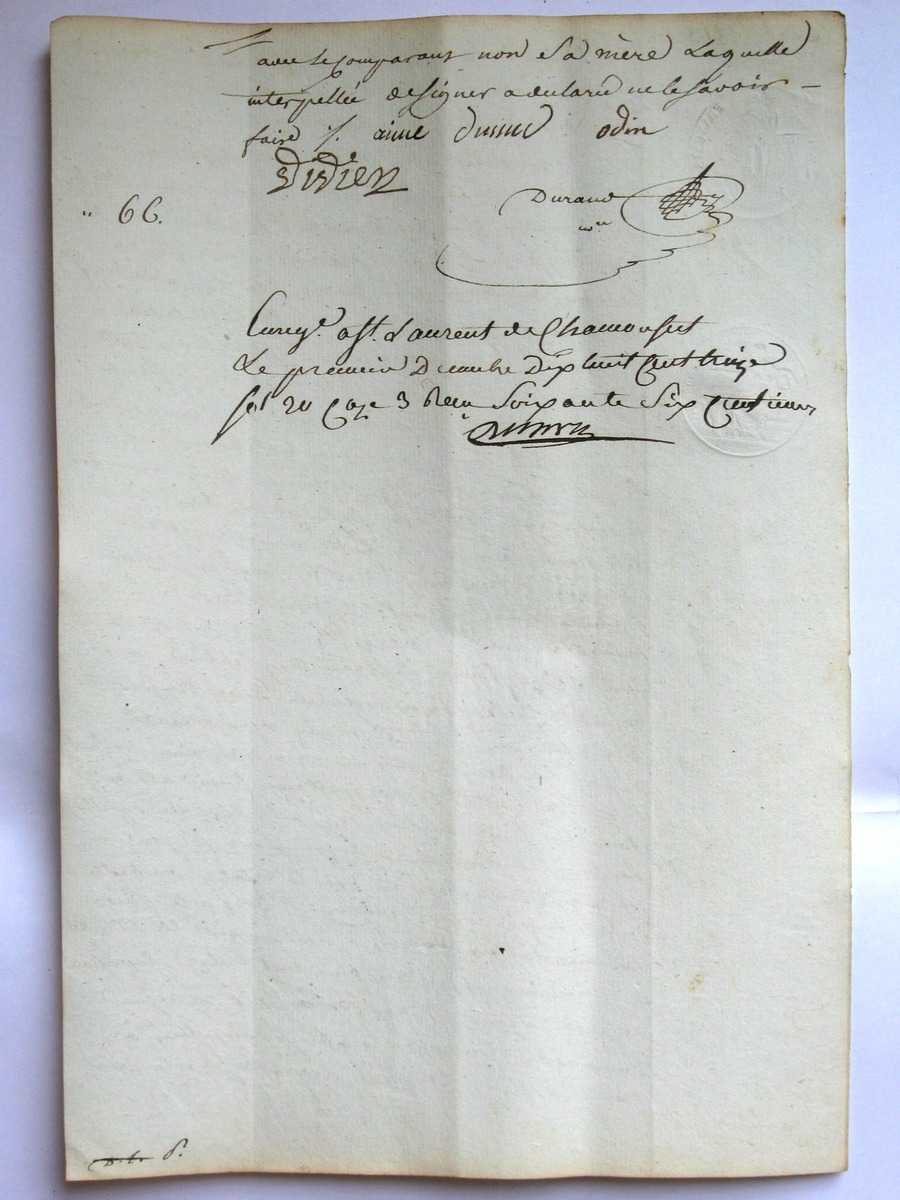 avec le comparant non sa mère laquelle
interpellée de signer a déclaré ne le savoir –
faire /. aimé odin
didier
Durand
" 66.
Enreg.é a st. Laurent de Chamousset
Le premier Décembre Dix huit Cent treize
fol 20 Caze 3 Reçu Soixante Six Centimes